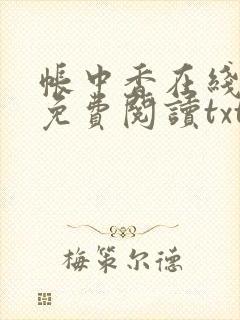 帳中香在綫
免費閱讀txt
梅策尔德